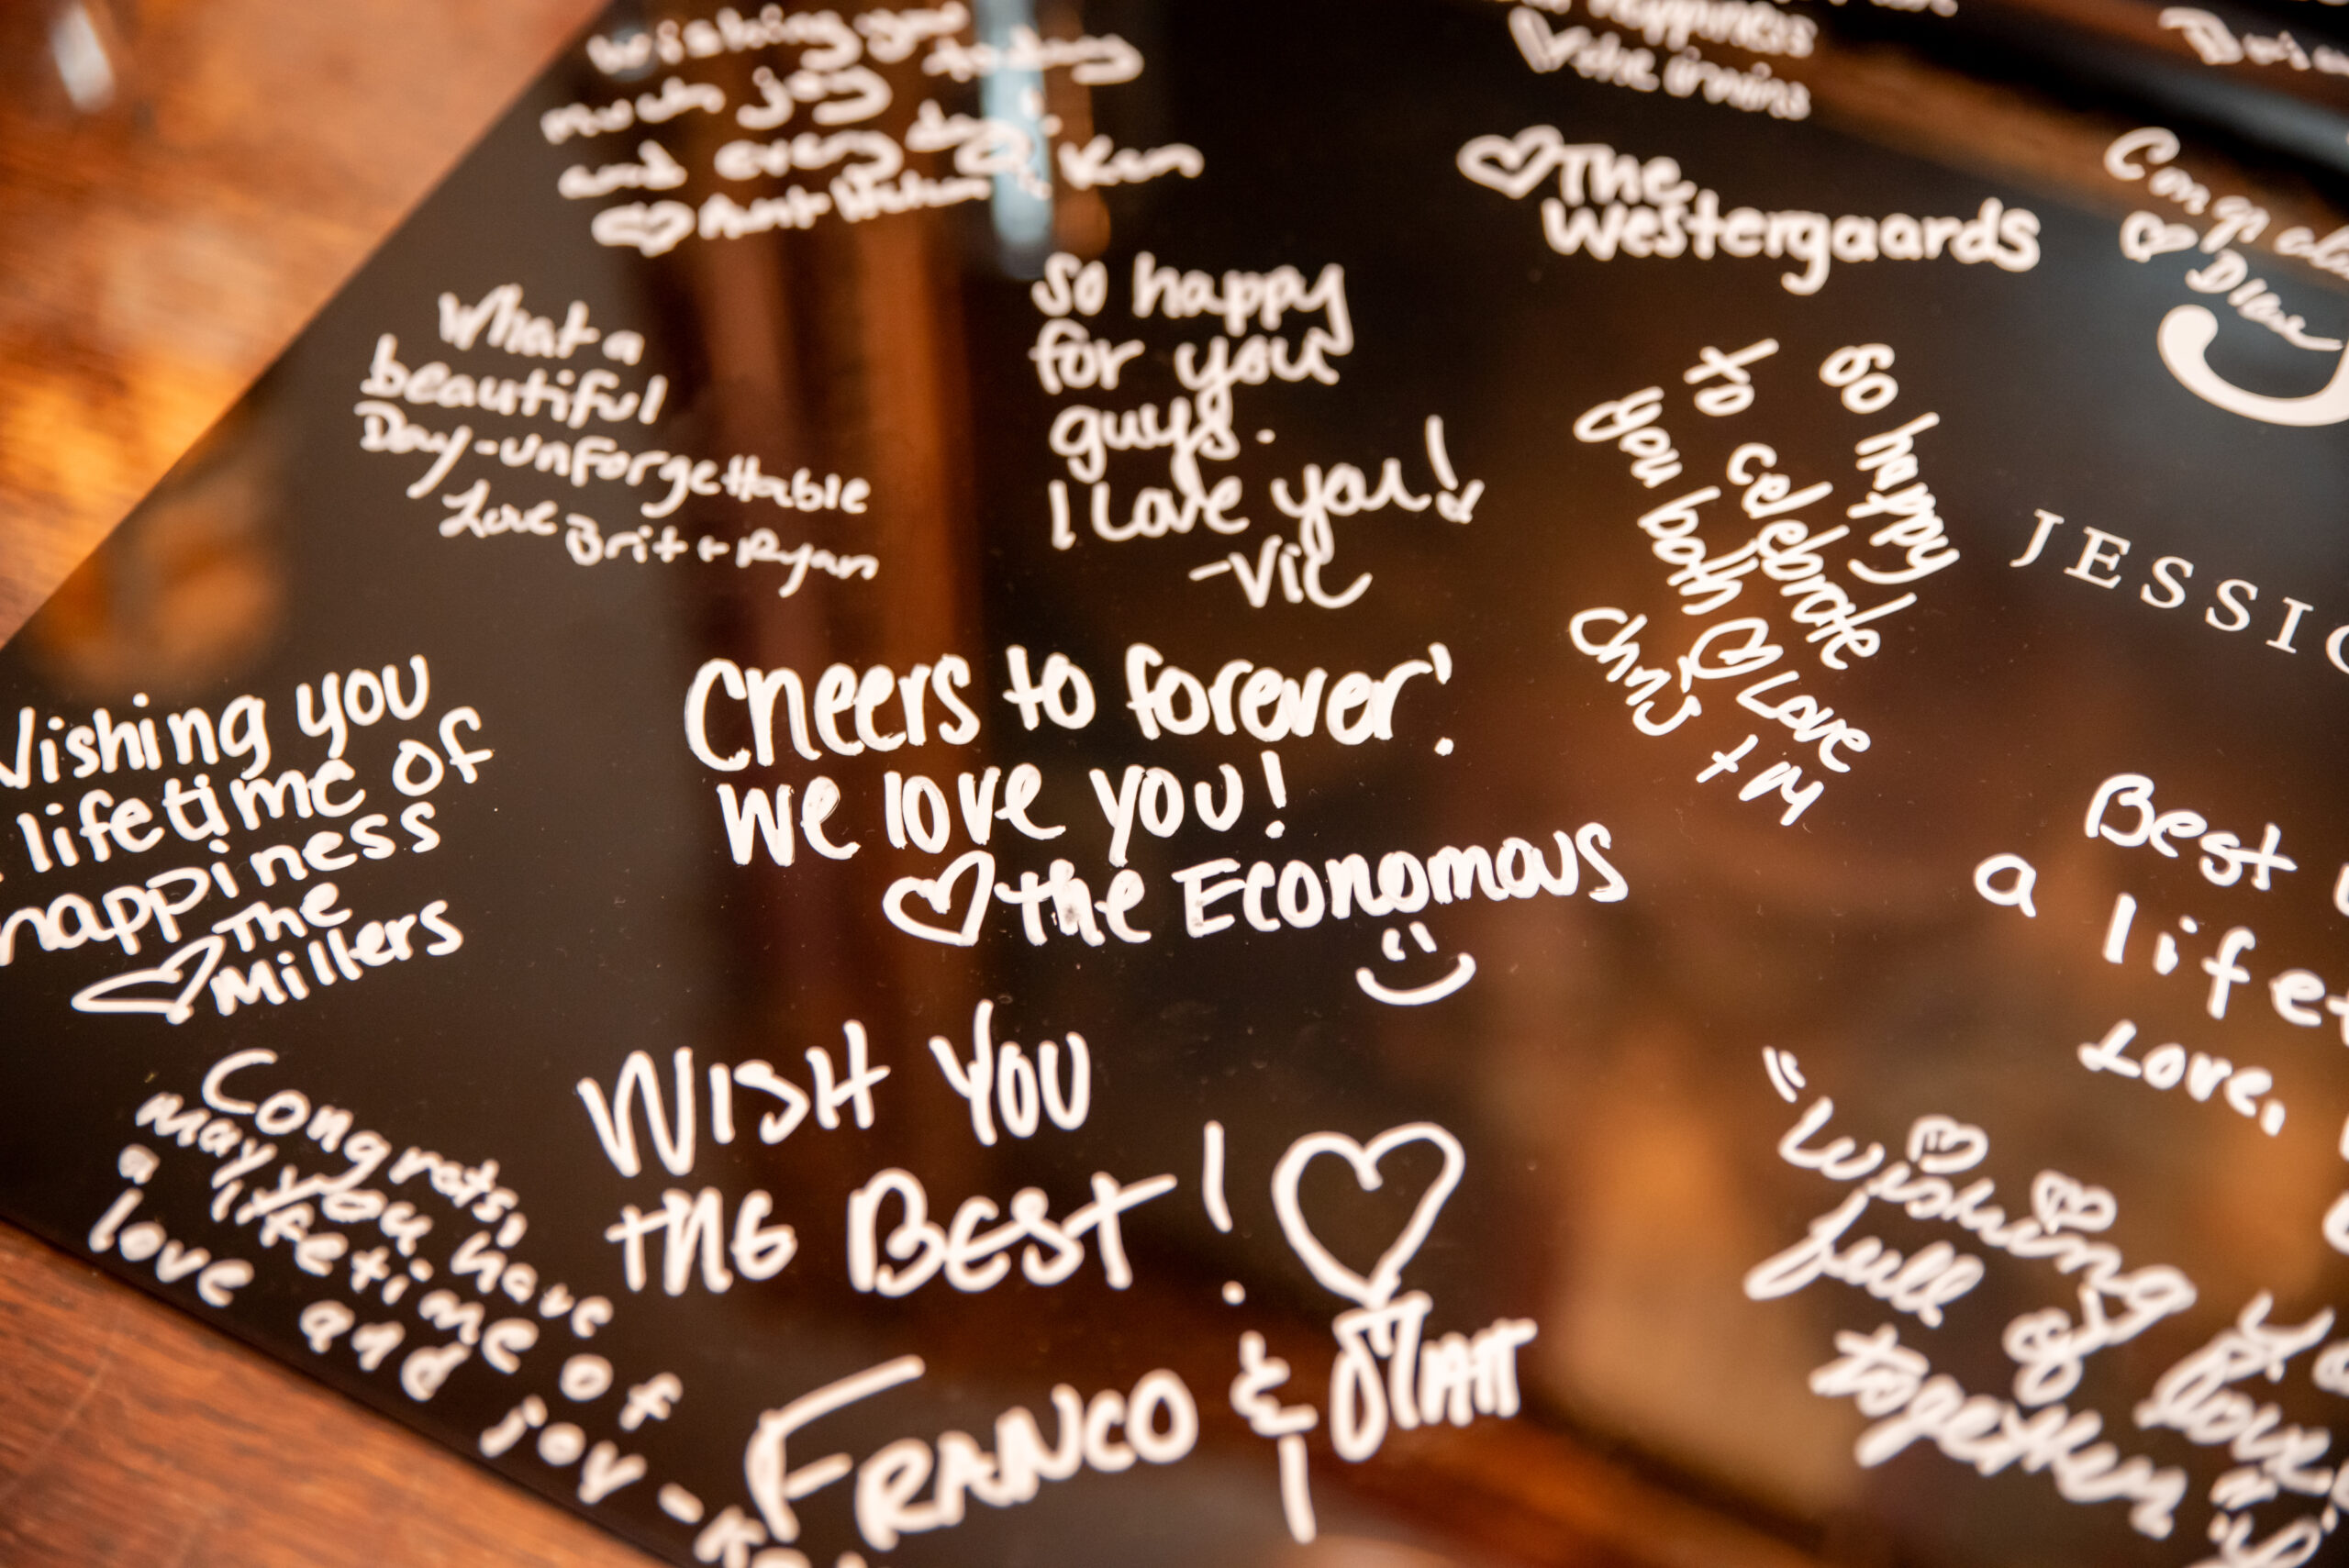 Wishing you
much joy today
and every day!
♡ Aunt
Happiness
♡ the irwins
♡ The
Westergaards
What a
beautiful
Day - unforgettable
Love Brit + Ryan
So happy
for you
guys.
I love you!
- Vic
So happy
to celebrate
you both ♡ Love
Chris + M
JESSIC
Wishing you
lifetime of
happiness
♡ The
Millers
Cheers to forever!
We love you!
♡ the Economous
Best
a lifet
Love,
Congrats,
may you have
a lifetime of
love and joy -
WISH YOU
THE BEST! ♡
FRANCO & MATT
Wishing
full of love
together